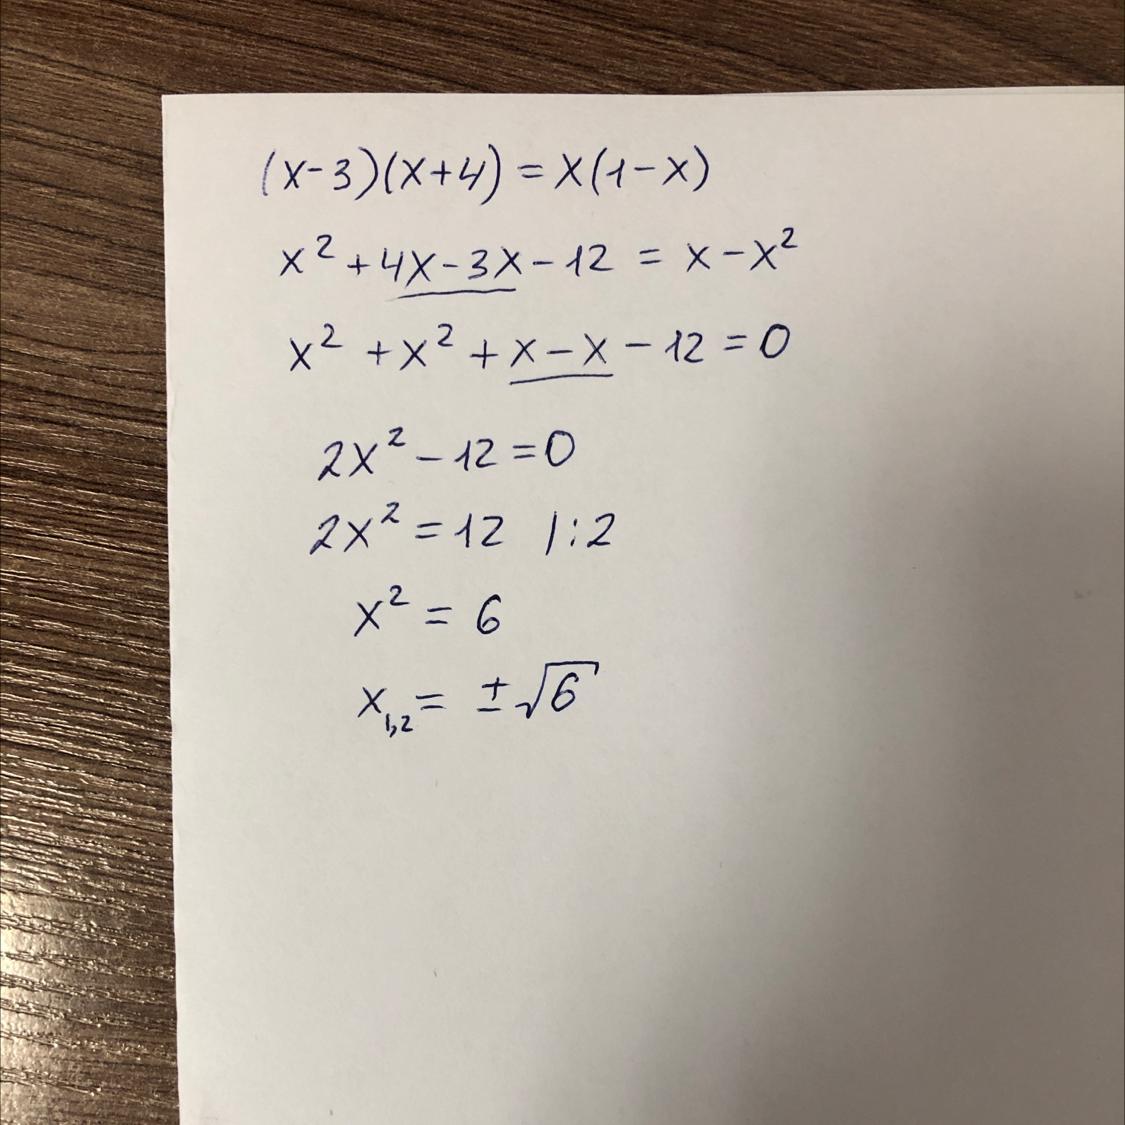 (x-3)(x+4) = x(1-x)
x² + 4x - 3x - 12 = x - x²
x² + x² + x - x - 12 = 0
2x² - 12 = 0
2x² = 12 |:2
x² = 6
x₁,₂ = ±√6